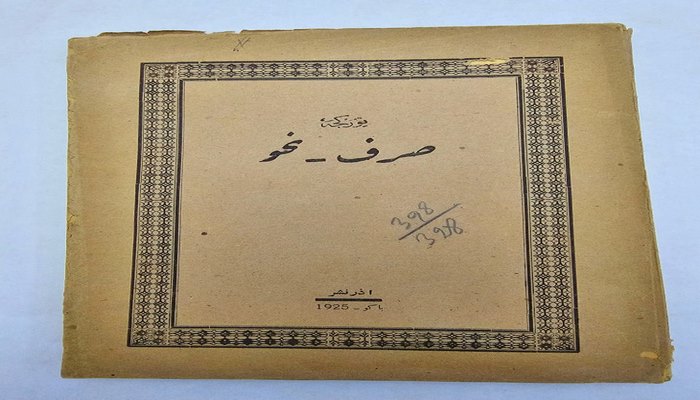 صرف ـ نحو
398
398
آذر نشر
باکو ـ 1925